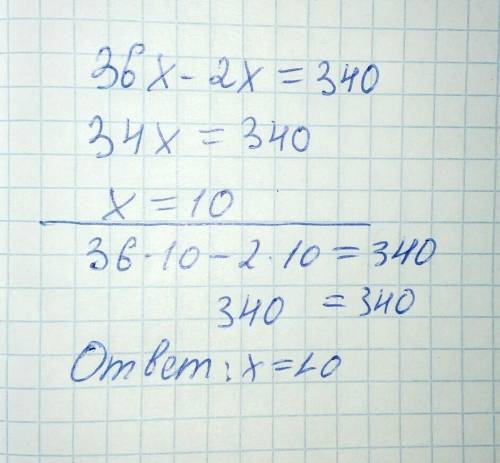 36x - 2x = 340
34x = 340
x = 10
36 · 10 - 2 · 10 = 340
340 = 340
Ответ: x = 10